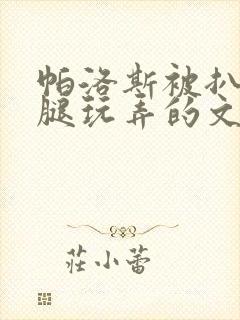 帕洛斯被扒
腿玩弄的文
莊小蕾